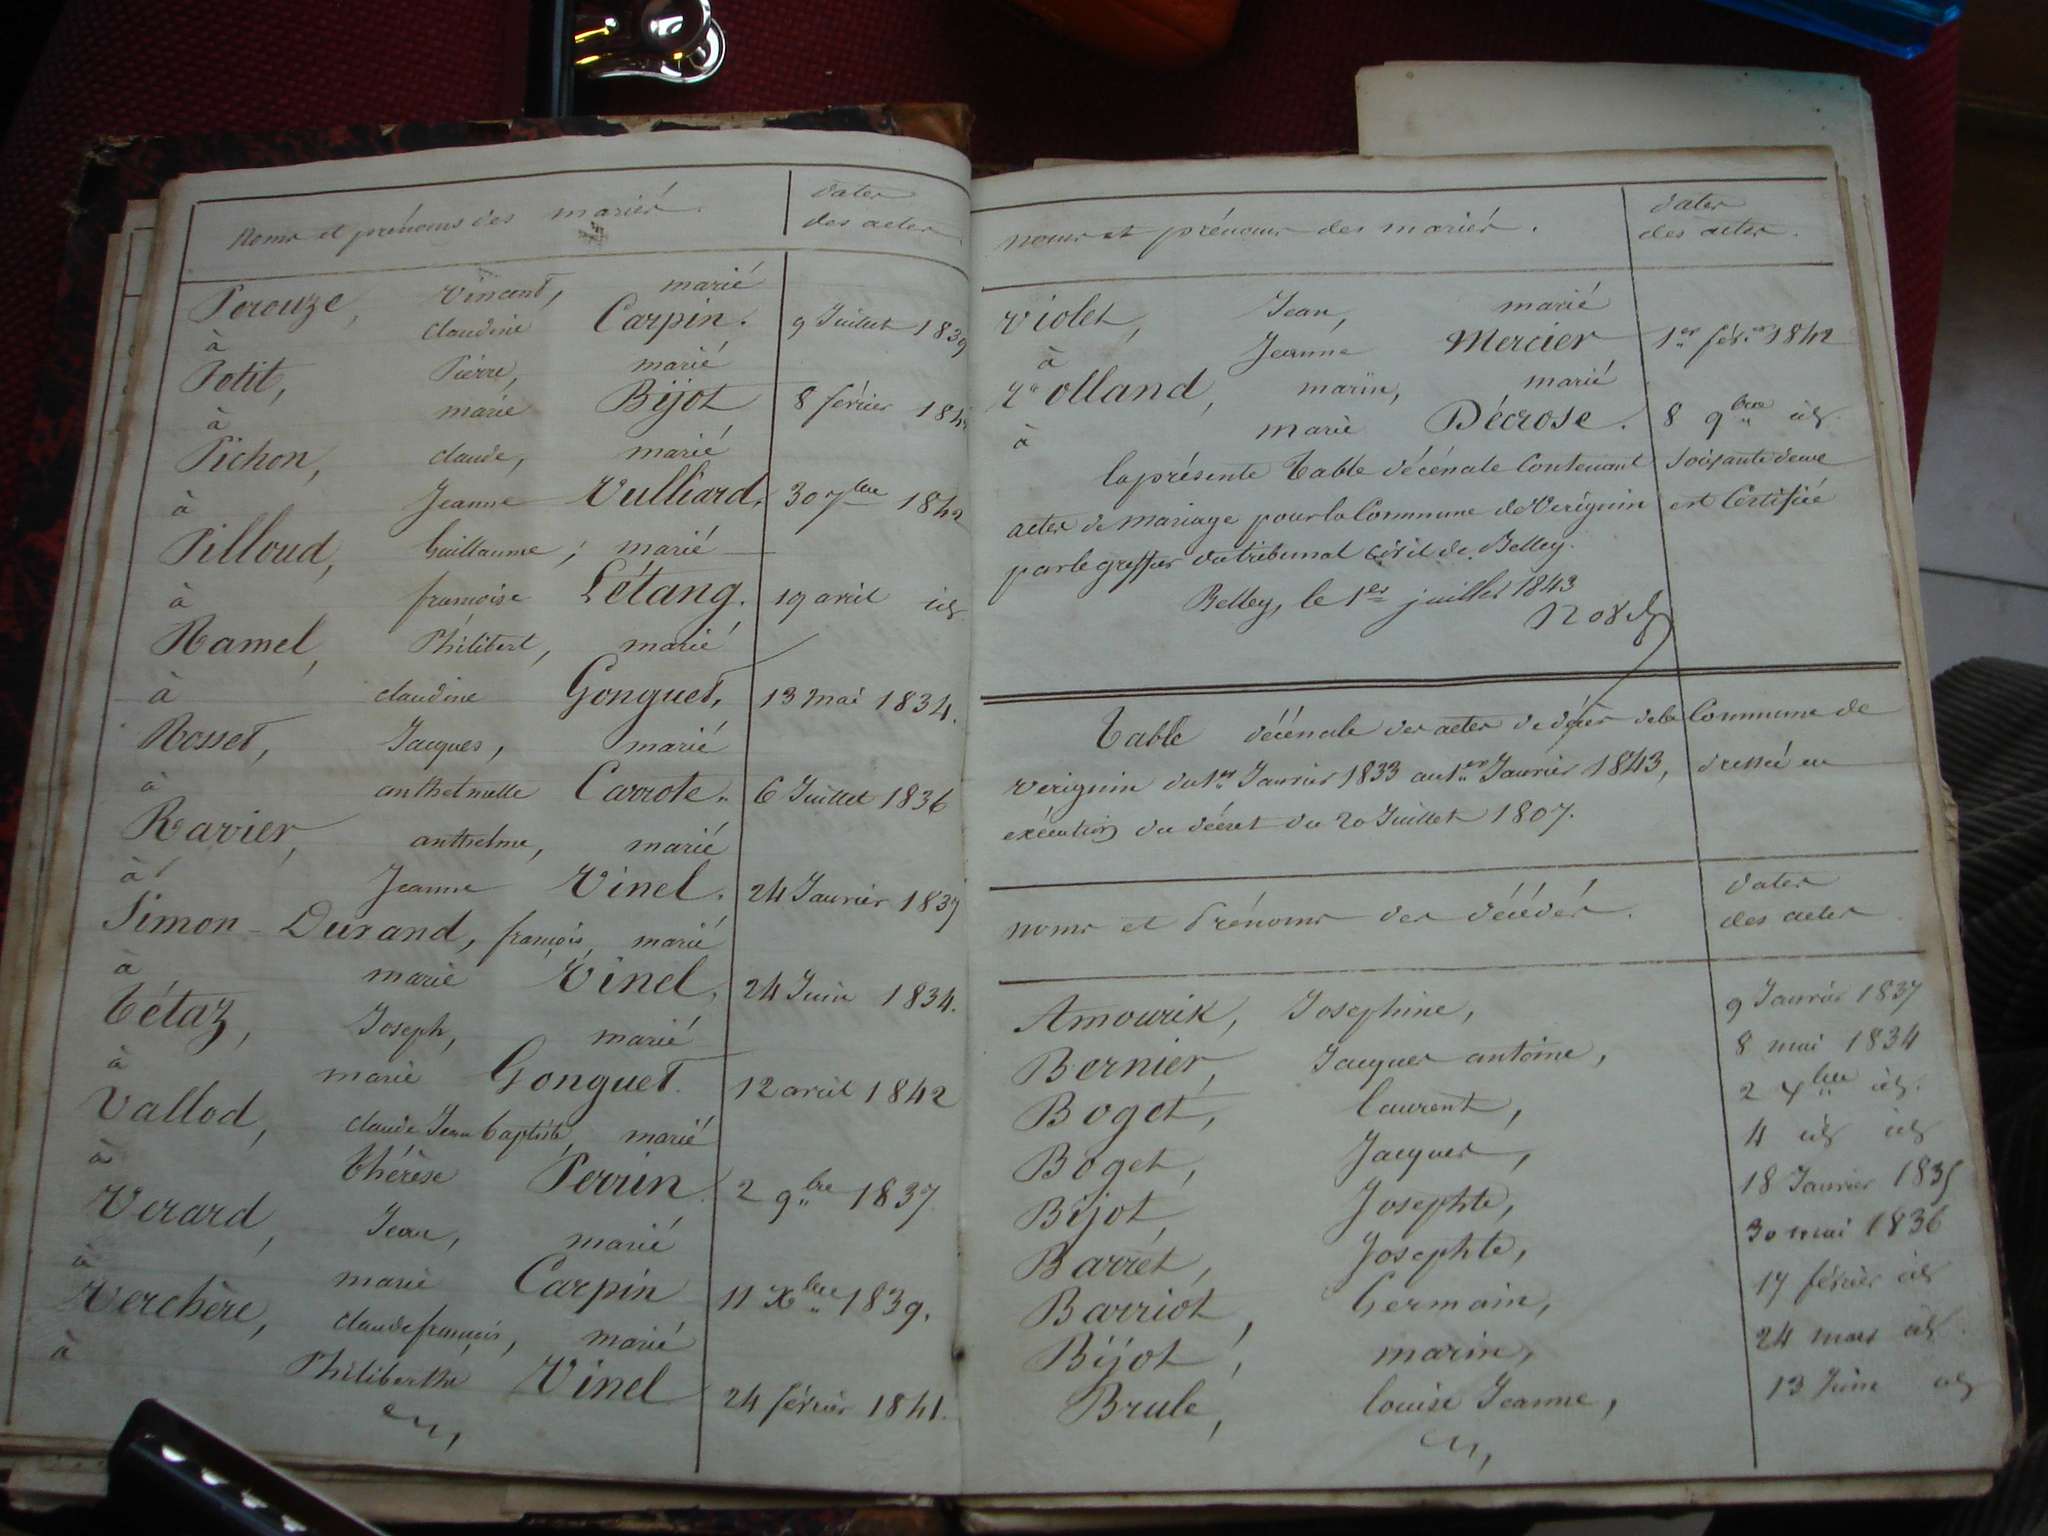 Noms et prénoms des mariés.
dates
des actes
Perouze, Vincent, marié
à claudine Carpin. 9 Juillet 1839
Petit, Pierre, marié
à marie Bijot 8 février 184
Pichon, claude, marié
à Jeanne Vulliard, 30 7bre 1842
Pilloud, Guillaume, marié
à françoise Létang. 19 avril id
Ramel, Philibert, marié
à claudine Gonguet, 13 mai 1834.
Rosset, Jacques, marié
à anthelmette Carrote. 6 Juillet 1836
Ravier, anthelme, marié
à Jeanne Vinel. 24 Janvier 1837
Simon-Durand, françois, marié
à marie Vinel, 24 Juin 1834.
Tétaz, Joseph, marié
à marie Gonguet. 12 avril 1842
Vallod, claude Jean baptiste, marié
à thérèse Perrin. 2 9bre 1837
Verard, Jean, marié
à marie Carpin 11 Xbre 1839.
Verchère, claude françois, marié
à Philiberthe Vinel 24 février 1841.
noms et prénoms des mariés.
dates
des actes.
Violet, Jean, marié
à Jeanne Mercier, 1er fév.er 1842
Volland, marin, marié
à marie Décrose. 8 9bre id.
la présente table décénale contenant soixante deux
actes de mariage pour la Commune de Verignin est Certifiée
par le greffier du tribunal civil de Belley.
Belley, le 1er juillet 1843
Table décénale des actes de décès de la Commune de
Verignin du 1er Janvier 1833 au 1er Janvier 1843, dressée en
exécution du décret du 20 Juillet 1807.
noms et Prénoms des décédés.
dates
des actes
Amourix, Josephine, 9 Janvier 1837
Bernier, Jacques antoine, 8 mai 1834
Boget, laurent, 2 Xbre id.
Boget, Jacques, 4 id id
Bijot, Josephte, 18 Janvier 1835
Barret, Josephte, 30 mai 1836
Barriot, Germain, 17 février id
Bijot, marin, 24 mars id.
Brule, louise Jeanne, 13 Juin id